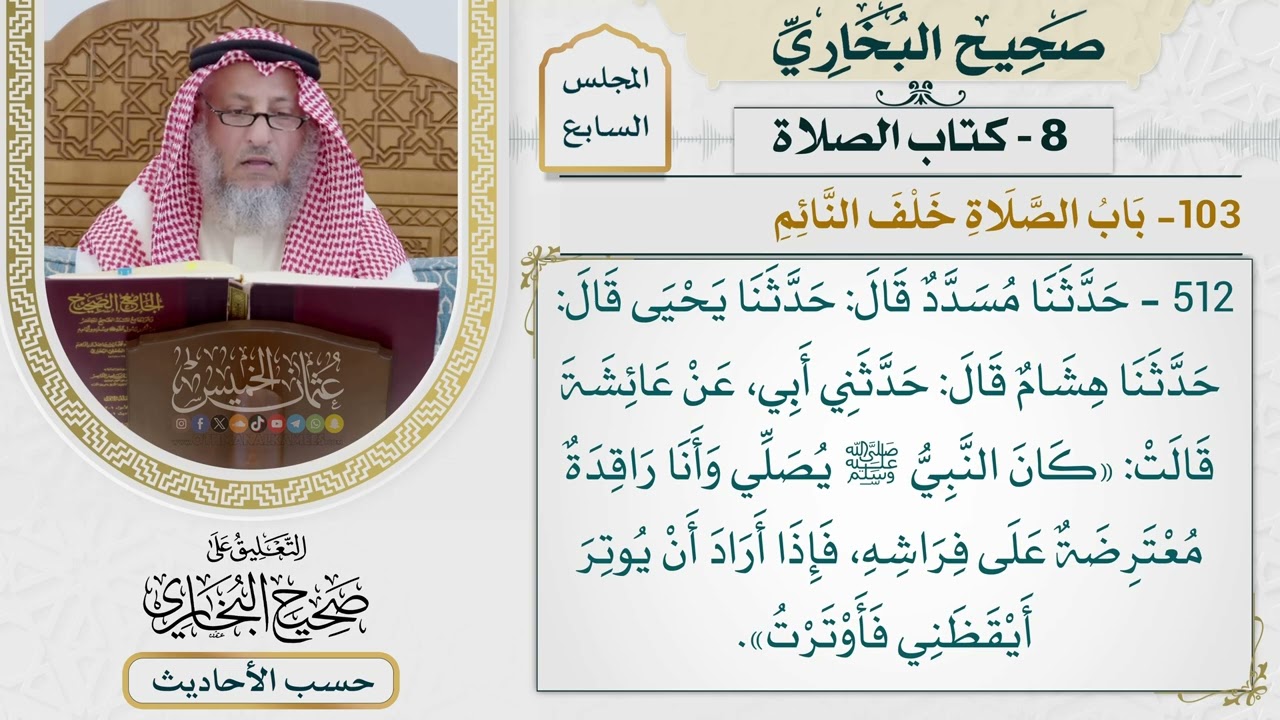 صَحِيح البُخَارِيِّ
المجلس
السابع
8 - كتاب الصلاة
103- بَابُ الصَّلَاةِ خَلْفَ النَّائِمِ
512 - حَدَّثَنَا مُسَدَّدٌ قَالَ: حَدَّثَنَا يَحْيَى قَالَ:
حَدَّثَنَا هِشَامٌ قَالَ: حَدَّثَنِي أَبِي، عَنْ عَائِشَةَ
قَالَتْ: «كَانَ النَّبِيُّ ﷺ يُصَلِّي وَأَنَا رَاقِدَةٌ
مُعْتَرِضَةٌ عَلَى فِرَاشِهِ، فَإِذَا أَرَادَ أَنْ يُوتِرَ
أَيْقَظَنِي فَأَوْتَرْتُ».
الجامع الصحيح
عثمان الخميس
التَّعْلِيقُ عَلَى
صَحِيح البُخَارِي
حسب الأحاديث